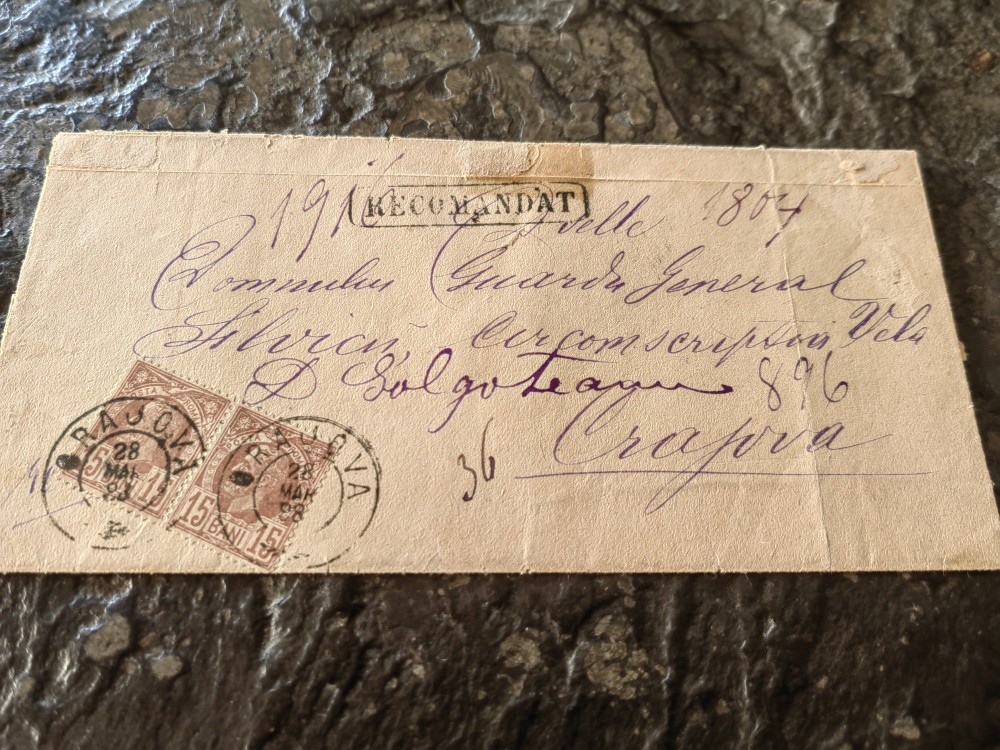 191 RECOMANDAT 1804
Domnului Guardu General
Silvicŭ Circomscripţia
D Bolgoteanu 896
36 Crajova
CRAJOVA
28
MAR
15 15
CRAJOVA
28
MAR
98
15 BANI 15